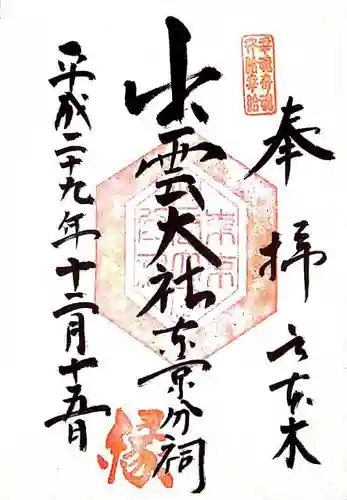 奉拝
六本木
出雲大社東京分祠
平成二十九年十二月十五日
縁